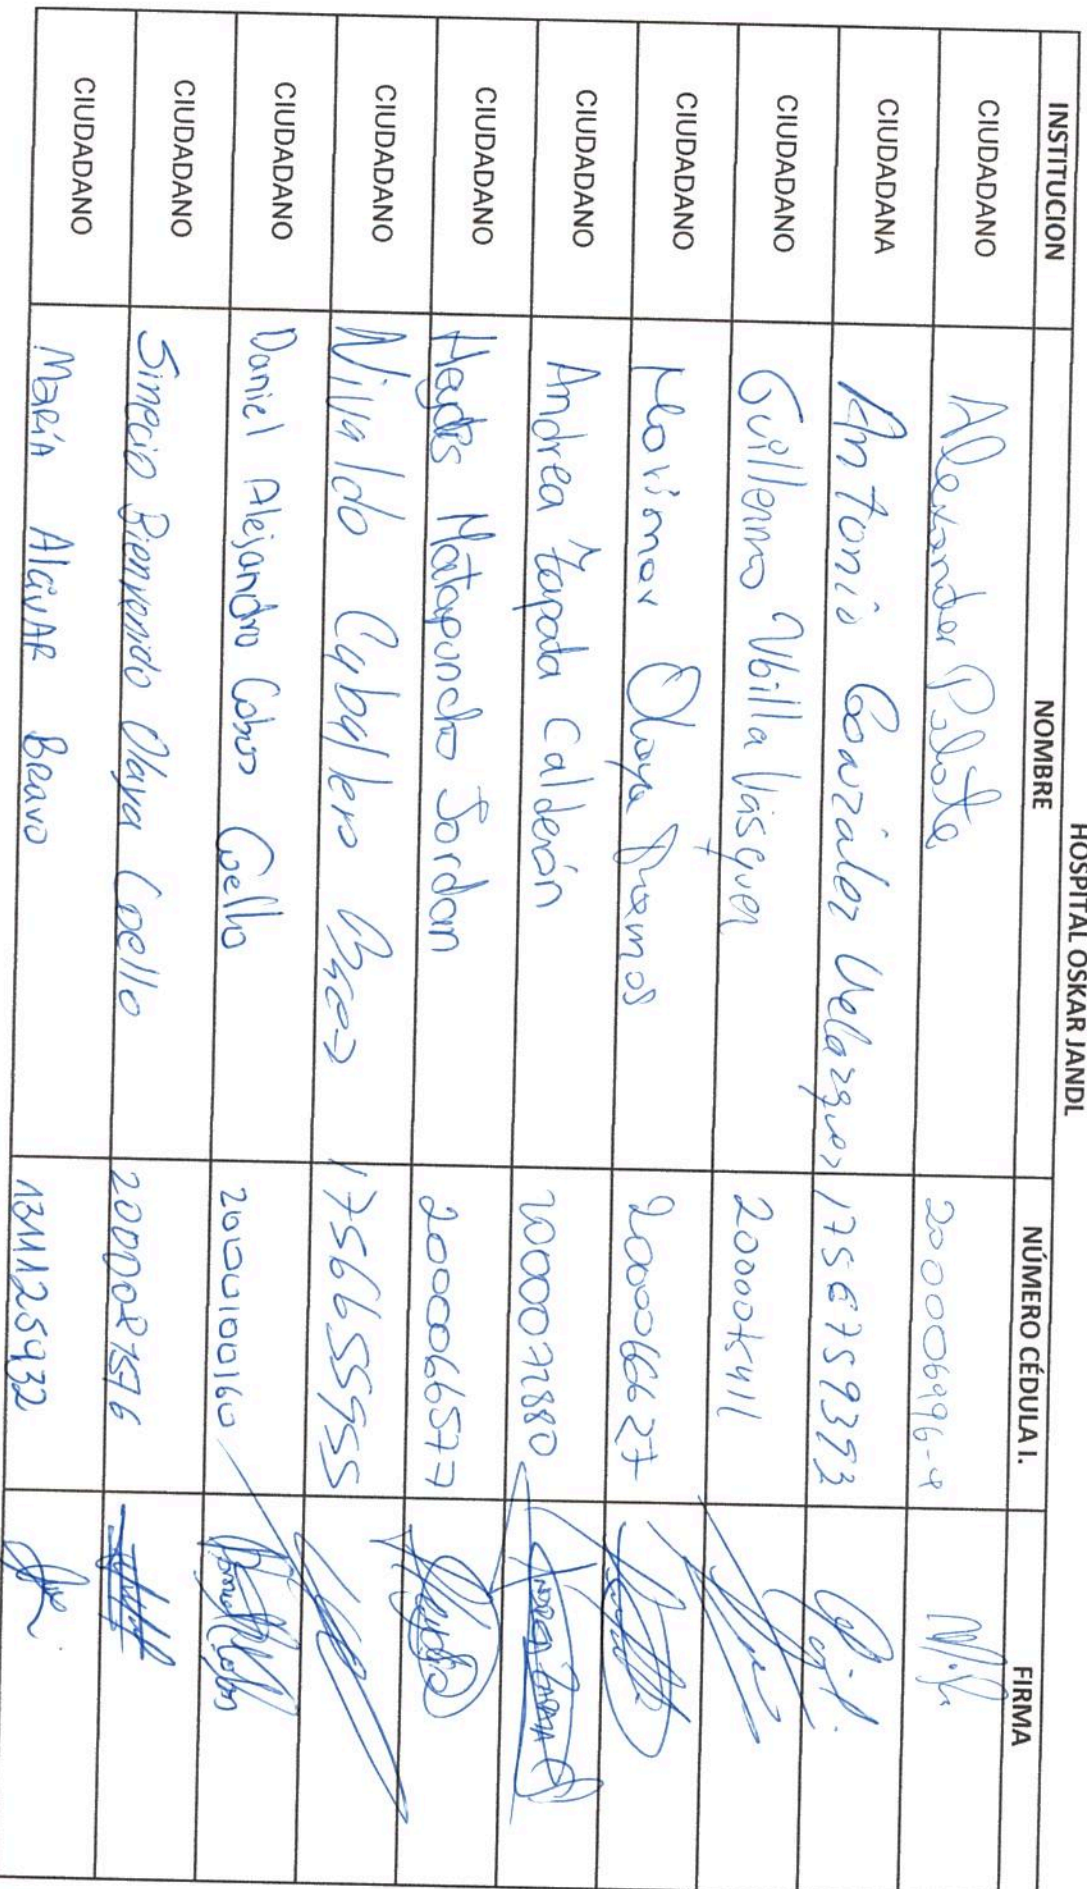 HOSPITAL OSKAR JANDL
INSTITUCION NOMBRE NÚMERO CÉDULA I. FIRMA
CIUDADANO Alexander 200006996-4
CIUDADANA Antonio González Velazquez 1756759393
CIUDADANO Guillermo Ubilla Vásquez
CIUDADANO Marimar Olaya Ramos 2000066627
CIUDADANO Andrea Zapata Calderón 2000072880 ANDREA ZAPATA
CIUDADANO Jordan 2000066577
CIUDADANO Nivaldo Caballero 1756655955
CIUDADANO Daniel Alejandro Cobos Coello 2000100160
CIUDADANO Simecio Bienvenido Olaya Coello 2000087576
CIUDADANO MARÍA Alcívar Bravo 1311125932